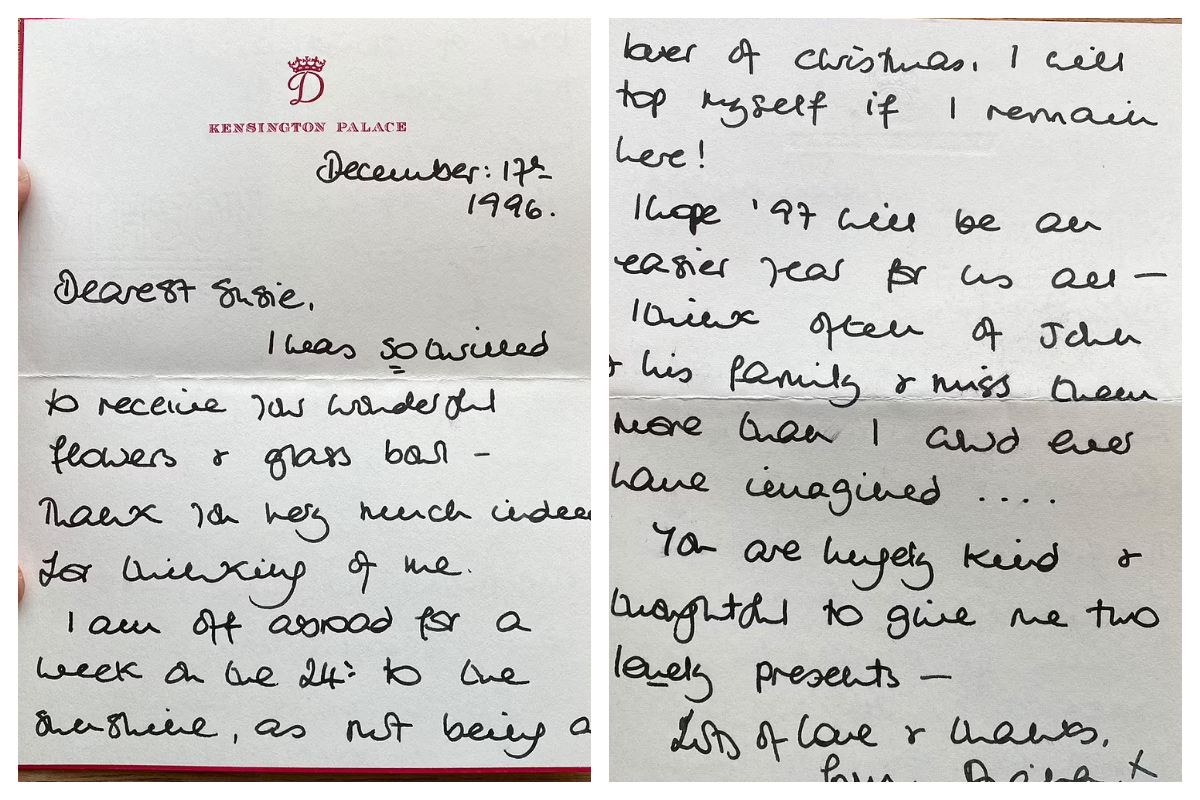 D
KENSINGTON PALACE
December: 17th
1996.
Dearest Susie,
I was so thrilled
to receive your wonderful
flowers & glass ball -
Thank you very much indeed
for thinking of me.
I am off abroad for a
week on the 24th to the
sunshine, as not being a
lover of christmas, I will
top myself if I remain
here!
I hope '97 will be an
easier year for us all -
I think often of John
& his family & miss them
more than I could ever
have imagined ....
You are hugely kind &
thoughtful to give me two
lovely presents -
Lots of love & thanks,
from x